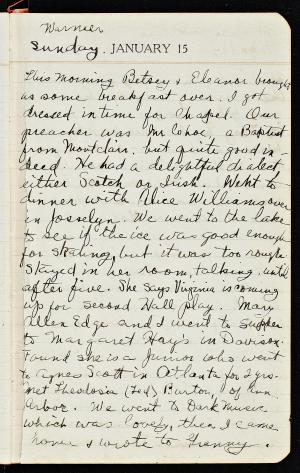 Warmer
Sunday, JANUARY 15
This morning Betsey & Eleanor brought
us some breakfast over. I got
dressed in time for Chapel. Our
preacher was Mr Cohoe, a Baptist
from Montclair, but quite good in-
deed. He had a delightful dialect,
either Scotch or Irish. Went to
dinner with Alice Williams over
in Josselyn. We went to the lake
to see if the ice was good enough
for skating, but it was too rough.
Stayed in her room, talking, until
after five. She says Virginia is coming
up for second Hall play. Mary
Allen Edge and I went to supper
to Margaret Hay's in Davison.
Found she is a Junior who went
to Agnes Scott in Atlanta for 2 yrs.
Met Theodosia (Ted) Burton, of Ann
Arbor. We went to Dark Music
which was lovely, then I came
home & wrote to Granny.